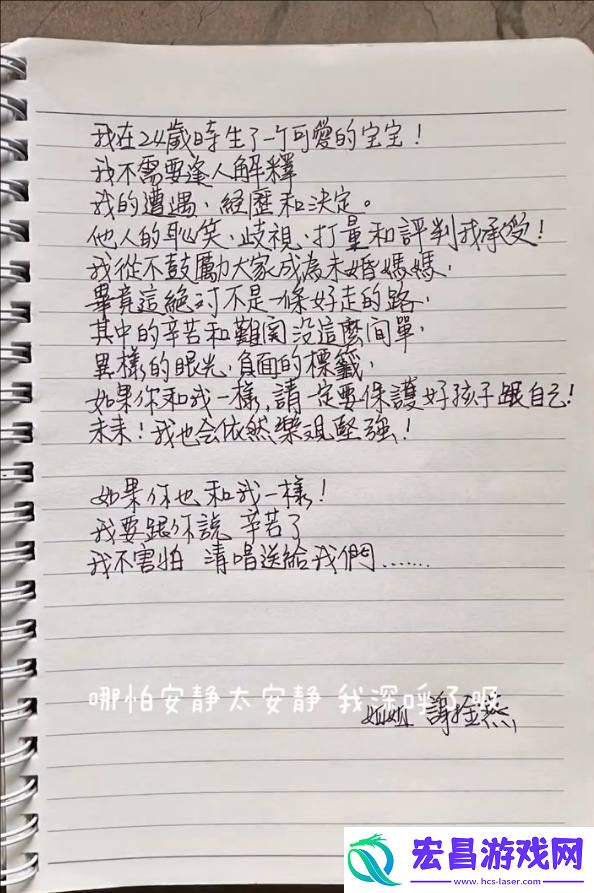 我在24歲時生了一个可愛的宝宝！
我不需要逢人解釋
我的遭遇、經歷和決定。
他人的恥笑、歧視、打量和評判我承受！
我從不鼓勵大家成為未婚媽媽，
畢竟這絕对不是一條好走的路，
其中的辛苦和難関没這麼间單，
異樣的眼光、負面的標籤，
如果你和我一樣，請一定要保護好孩子跟自己！
未来！我也会依然樂观堅強！
如果你也和我一樣！
我要跟你說 辛苦了
我不害怕 清唱送給我們……
哪怕安静太安静 我深呼了吸
姐姐 謝
宏昌游戏网
www.hcs-laser.com